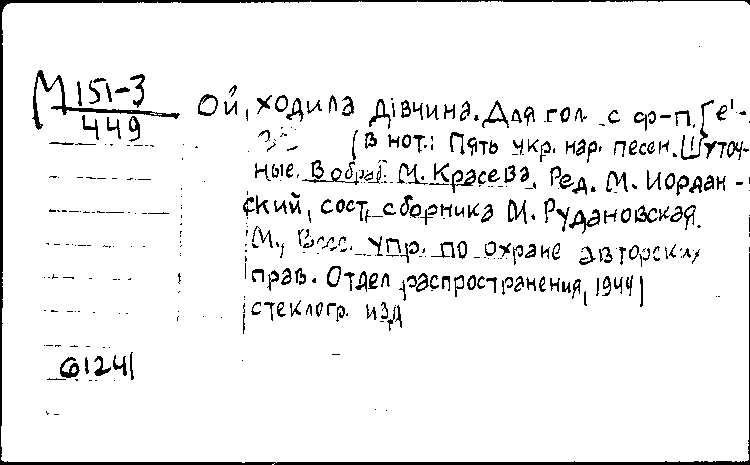 М 151-3
449
Ой, ходила дівчина. Для гол. с ф-п. [е¹-
(В нот.: Пять укр. нар. песен. Шуточ-
ные. В обраб. М. Красева. Ред. М. Иордан-
ский, сост. сборника М. Рудановская.
М., Всес. упр. по охране авторских
прав. Отдел распространения, 1944)
стеклогр. изд
61241